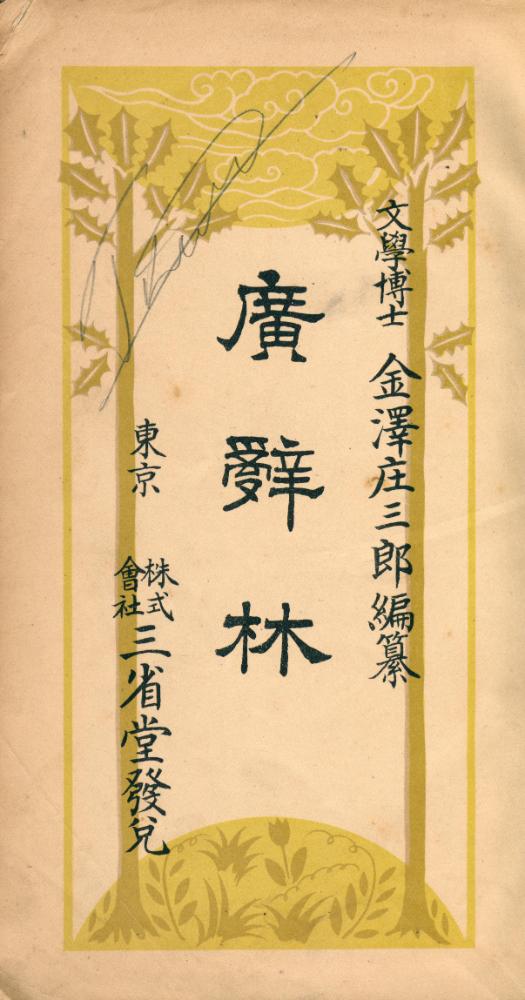 文學博士 金澤庄三郎編纂
廣辭林
東京 株式會社 三省堂發兌